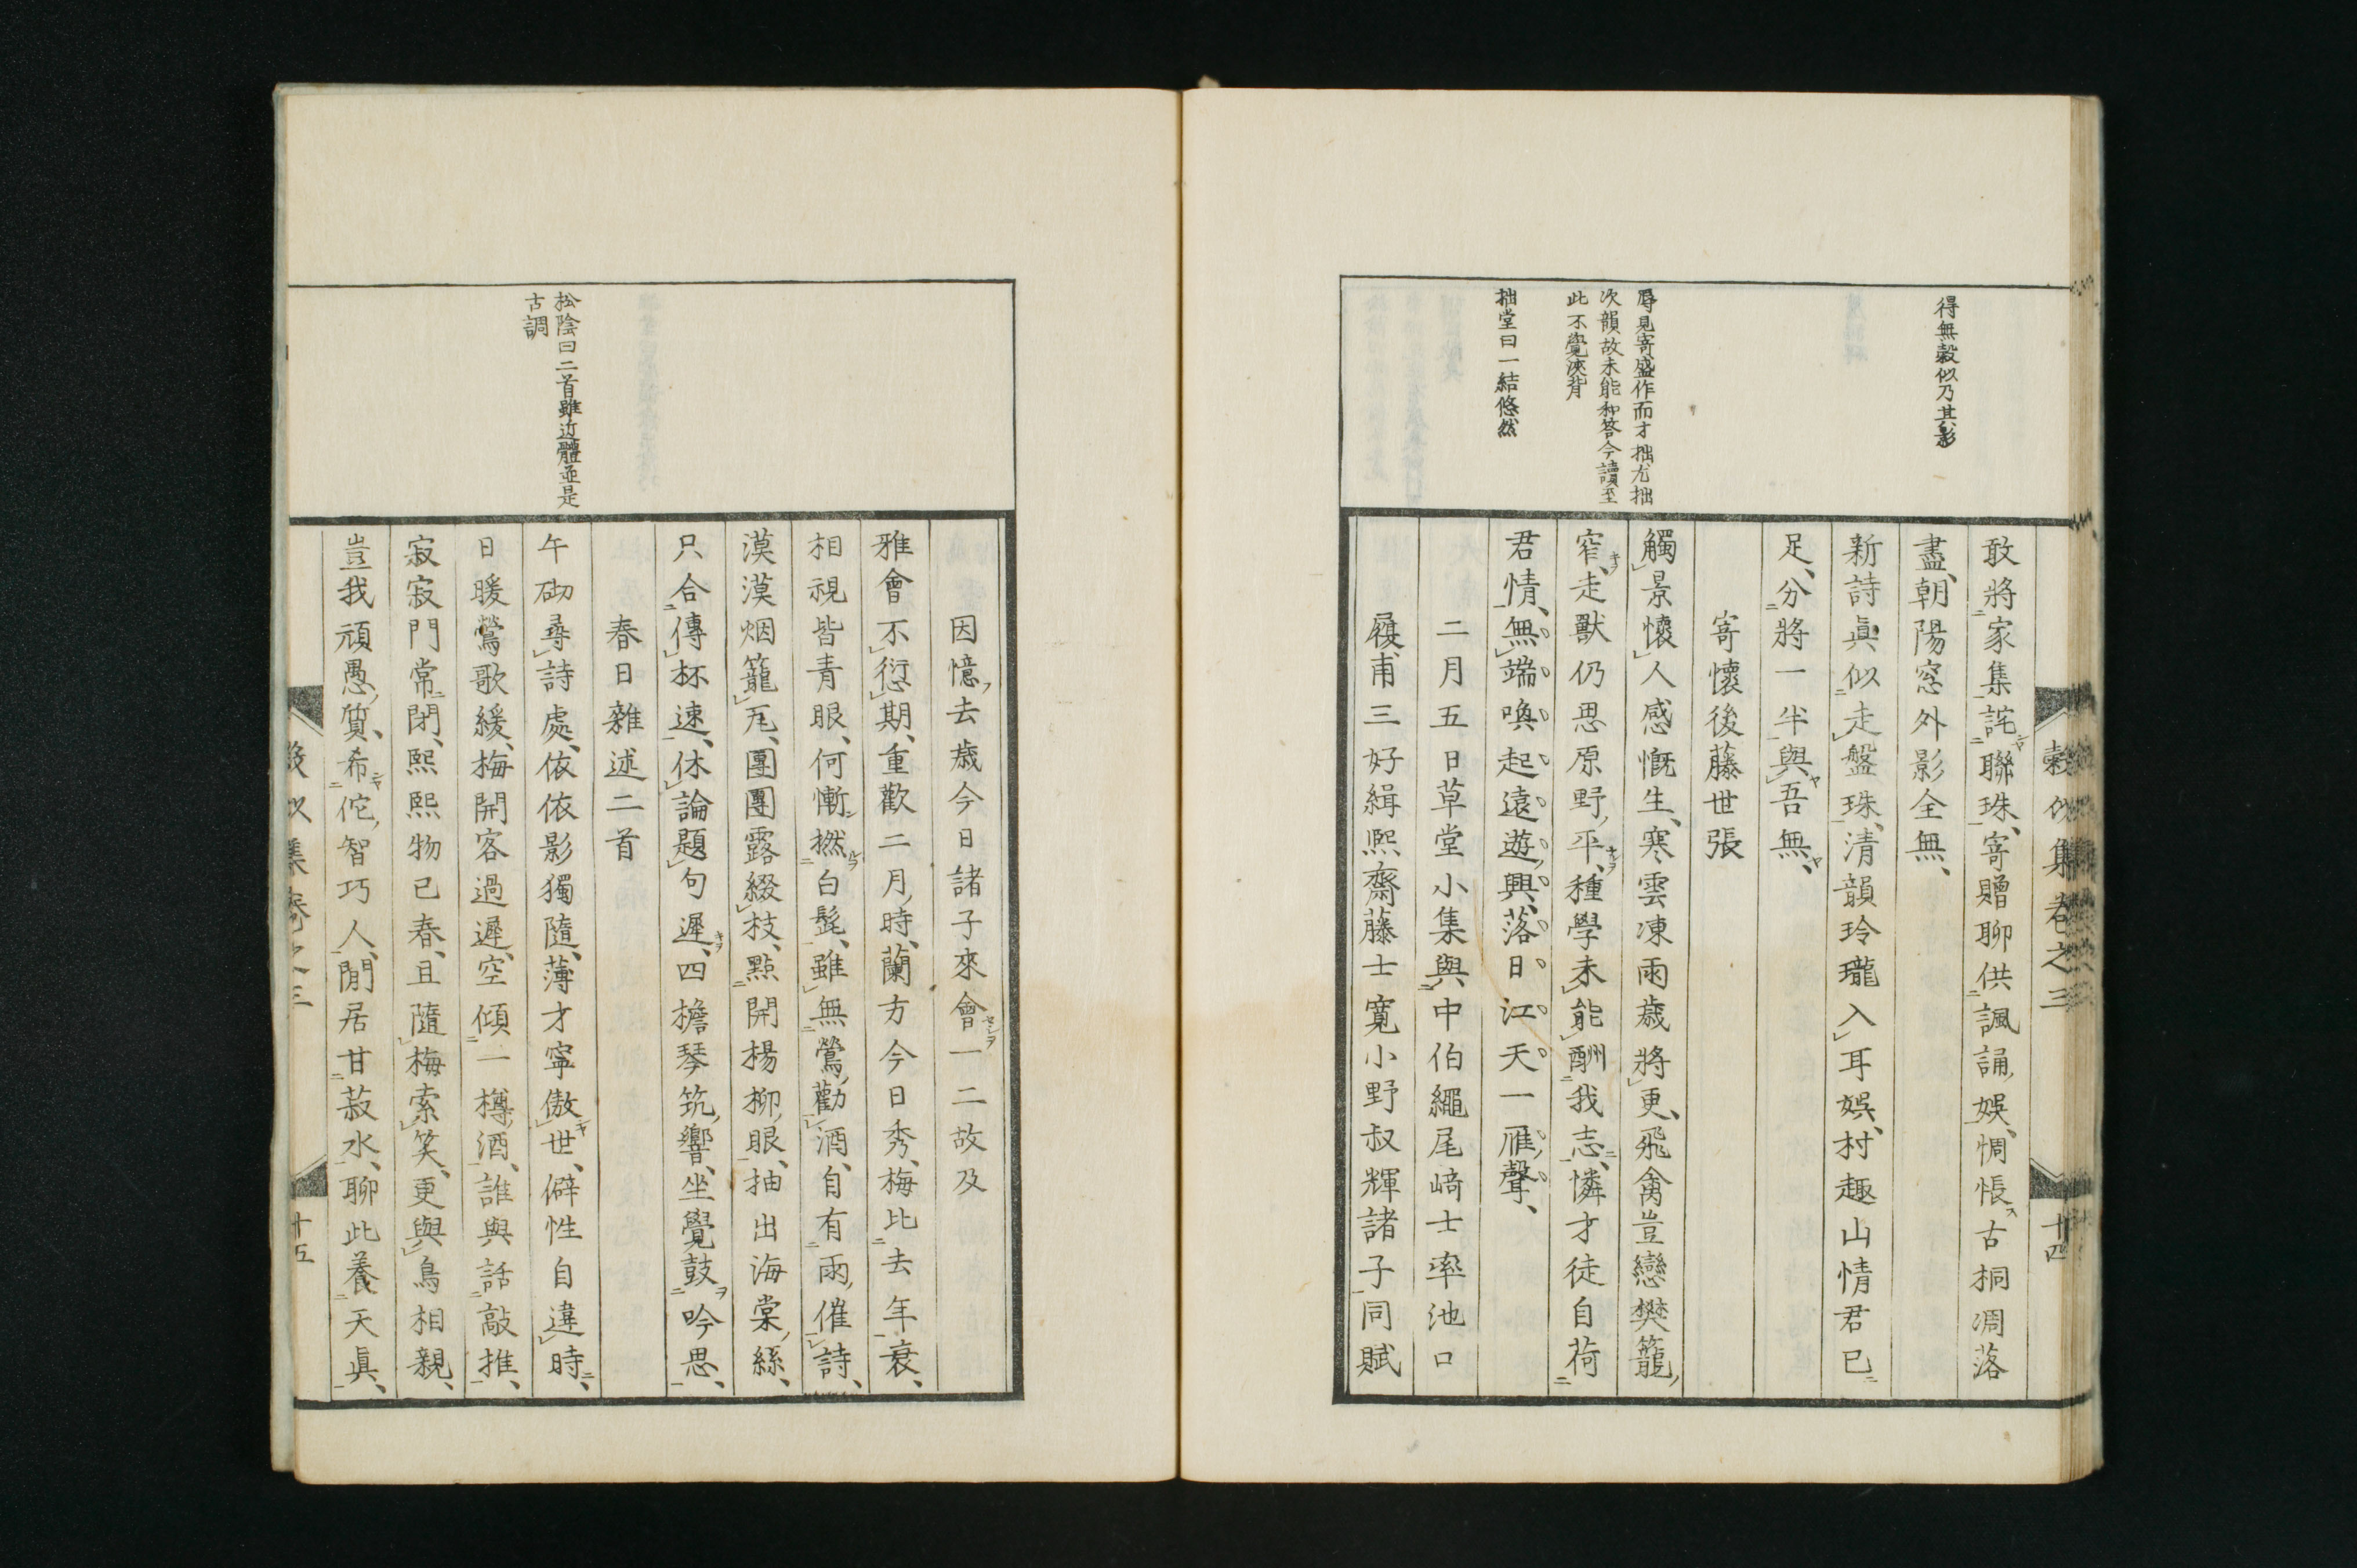 得無穀似乃其影
辱見寄盛作而才拙尤拙
次韻故未能和答今讀至
此不覺浹背
拙堂曰一結悠然
穀似集卷之三
十四
敢將家集詫聯珠、寄贈聊供諷誦娯、惆悵古桐凋落
盡、朝陽窓外影全無、
新詩眞似走盤珠、清韻玲瓏入耳娯、村趣山情君已
足、分將一半與吾無、
寄懷後藤世張
觸景懷人感慨生、寒雲凍雨歳將更、飛禽豈戀樊籠
窄、走獸仍思原野平、種學未能酬我志、憐才徒自荷
君情、無端喚起遠遊興、落日江天一雁聲、
二月五日草堂小集與中伯繩尾﨑士率池口
履甫三好緝熙齋藤士寛小野叔輝諸子同賦
松陰曰二首雖近體並是
古調
因憶去歳今日諸子來會一二故及
雅會不愆期、重歡二月時、蘭方今日秀、梅比去年衰、
相視皆青眼、何慚撚白髭、雖無鶯勸酒、自有雨催詩、
漠漠烟籠瓦、團團露綴枝、點開楊柳眼、抽出海棠絲、
只合傳杯速、休論題句遲、四檐琴筑響、坐覺鼓吟思、
春日雜述二首
午砌尋詩處、依依影獨隨、薄才寧傲世、僻性自違時、
日暖鶯歌緩、梅開客過遲、空傾一樽酒、誰與話敲推、
寂寂門常閉、熙熙物已春、且隨梅索笑、更與鳥相親、
豈我頑愚質、希佗智巧人、閒居甘菽水、聊此養天眞、
穀似集卷之三
十五